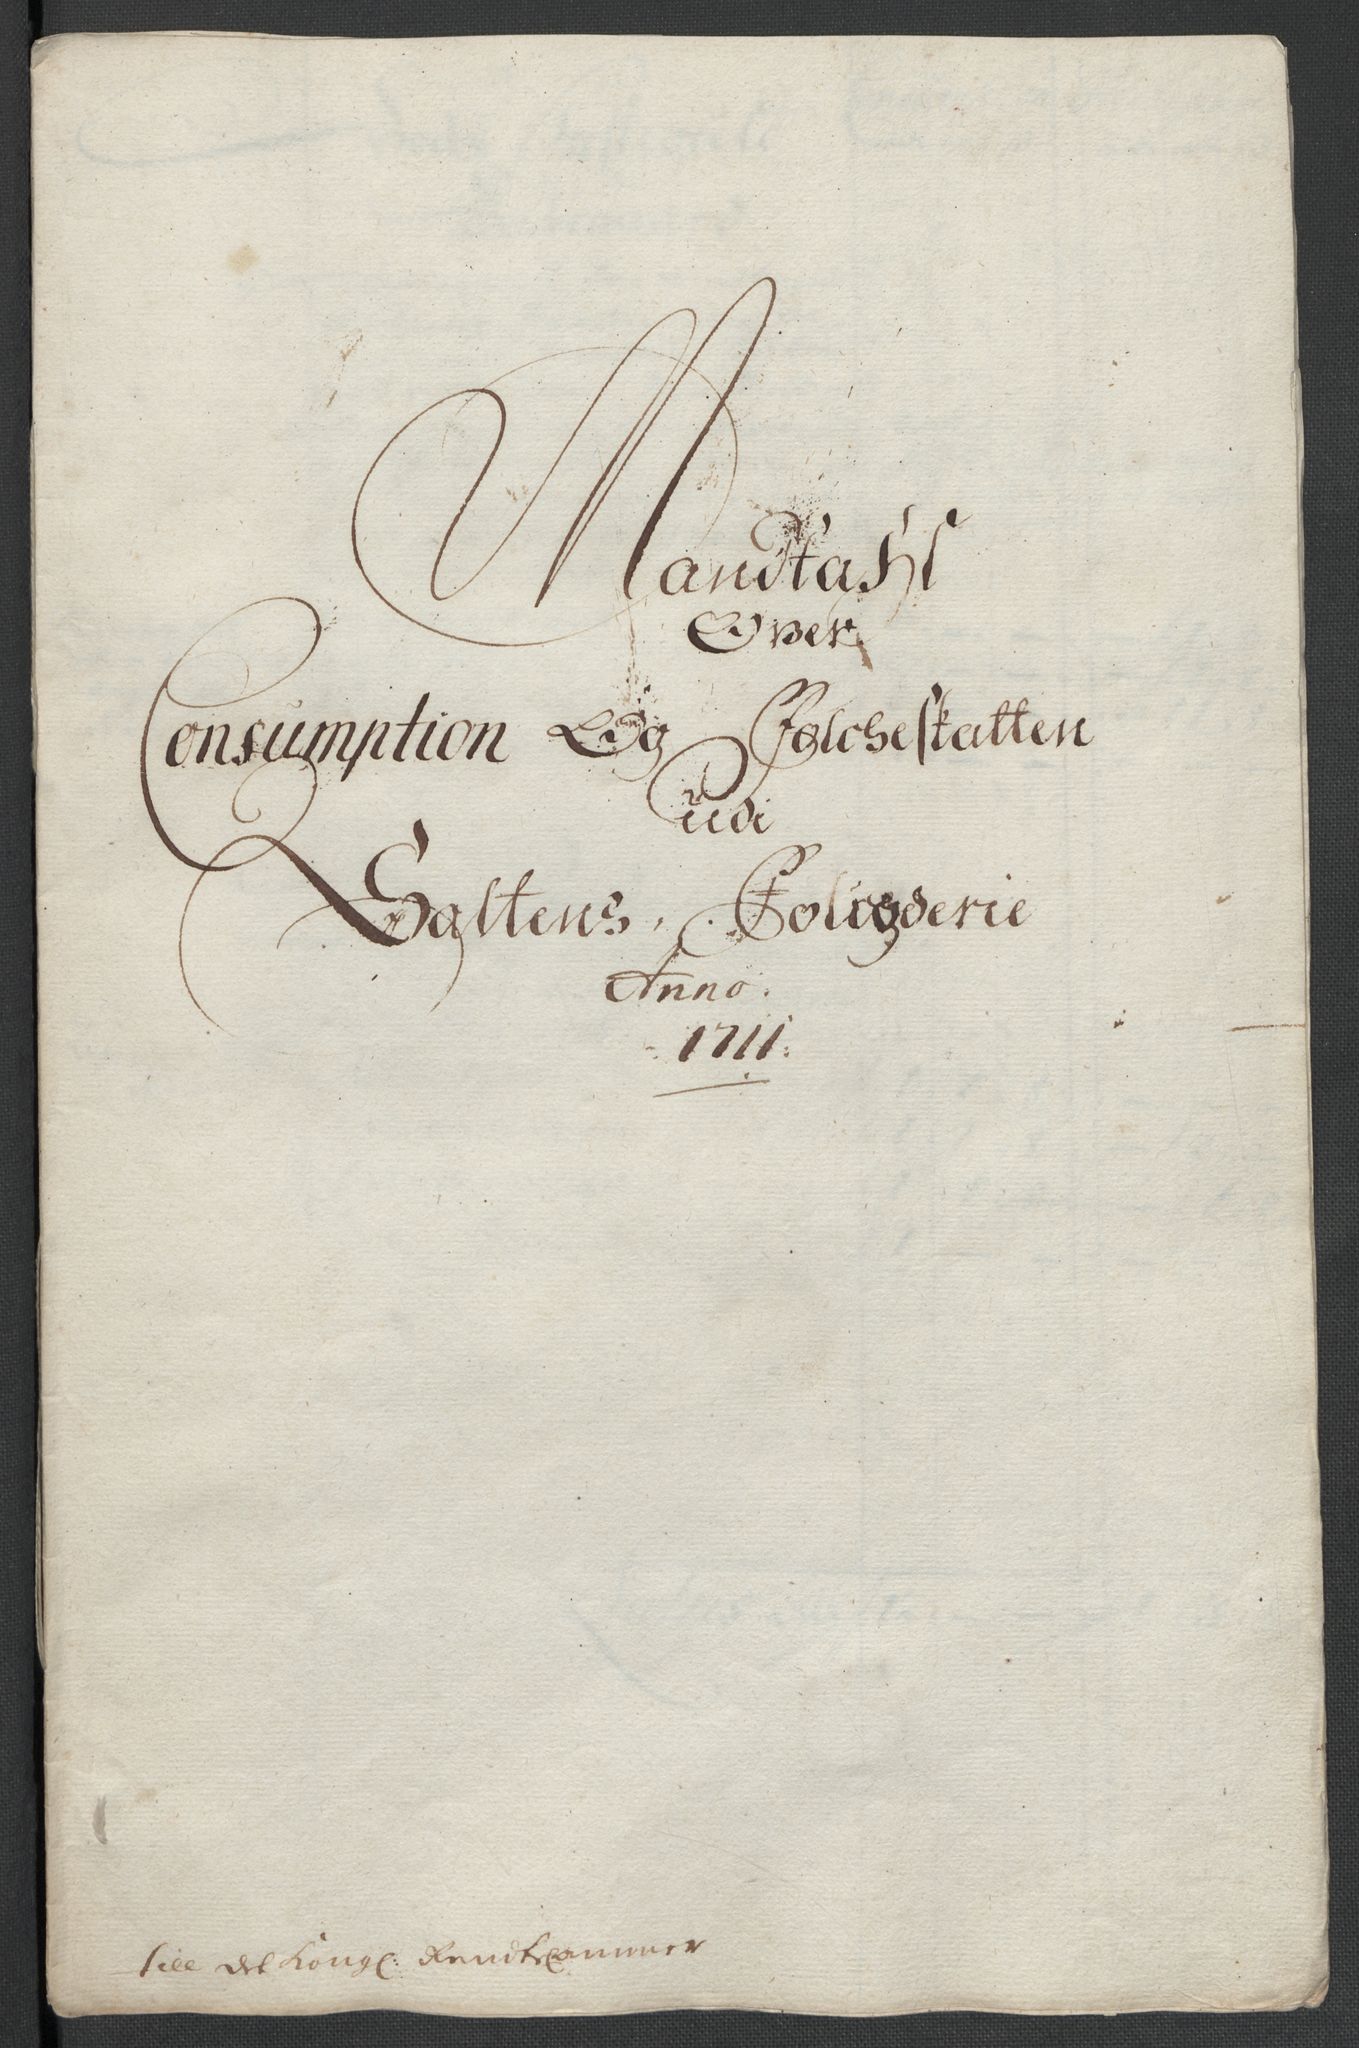 Mandtahl
Over
Consumption Og Folcheskatten
udi
Saltens, Fougderie
Anno.
1711.
Till det Kongl: Rendtekammer